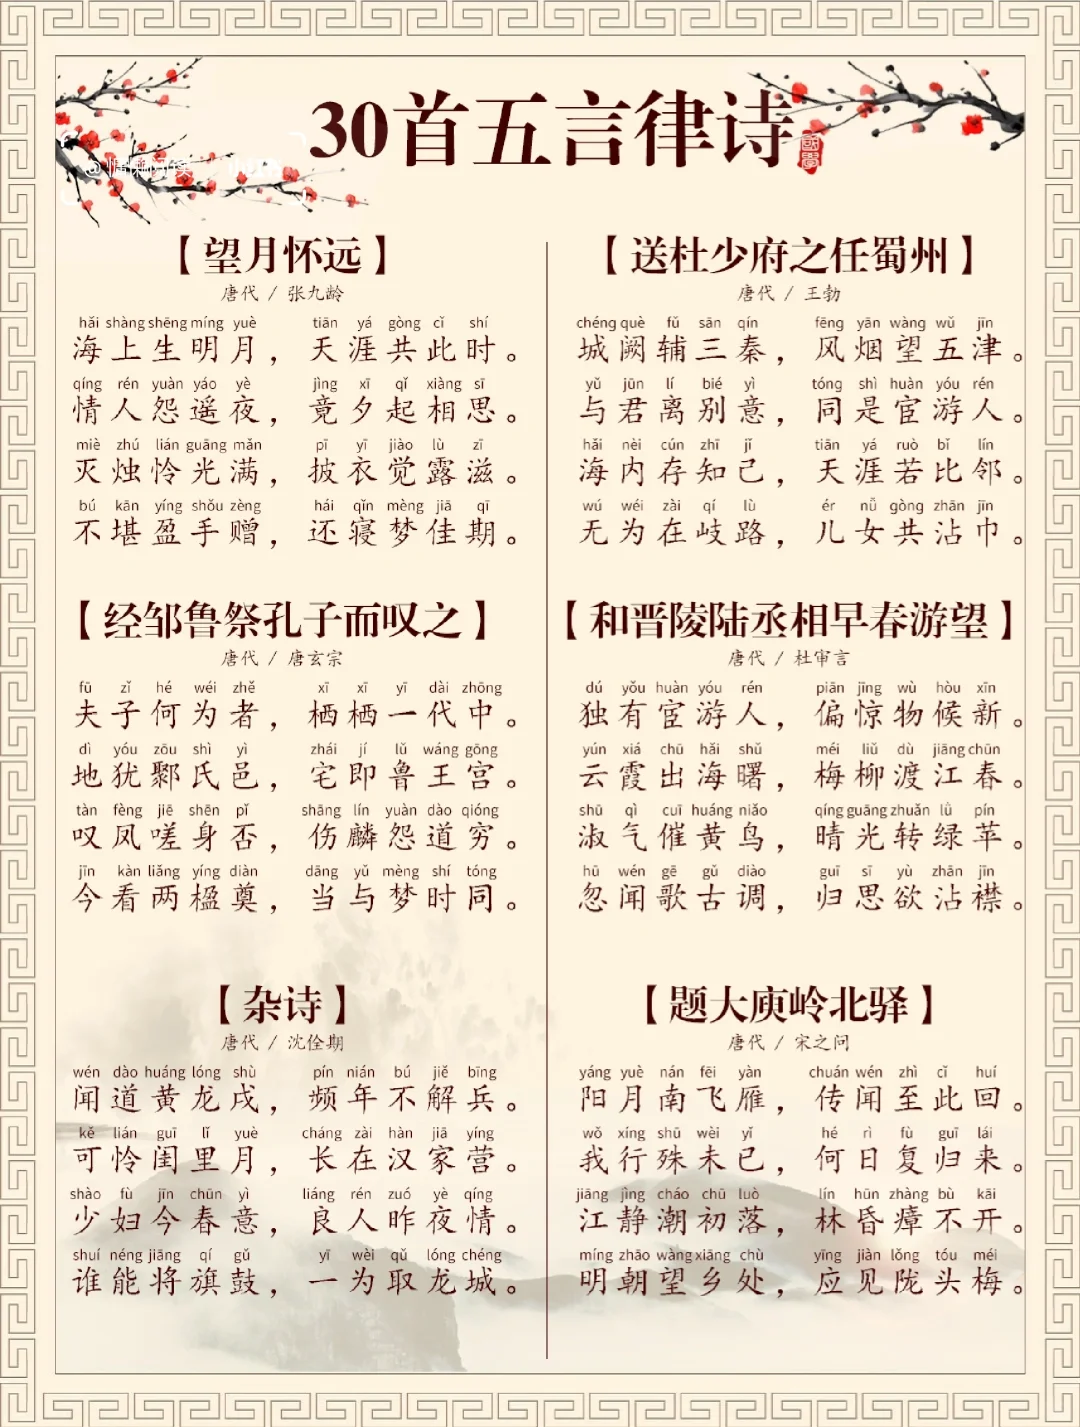 30首五言律诗
國學
【望月怀远】
唐代 / 张九龄
hǎi shàng shēng míng yuè tiān yá gòng cǐ shí
海上生明月，天涯共此时。
qíng rén yuàn yáo yè jìng xī qǐ xiàng sī
情人怨遥夜，竟夕起相思。
miè zhú lián guāng mǎn pī yī jiào lù zī
灭烛怜光满，披衣觉露滋。
bú kān yíng shǒu zèng hái qǐn mèng jiā qī
不堪盈手赠，还寝梦佳期。
【送杜少府之任蜀州】
唐代 / 王勃
chéng què fǔ sān qín fēng yān wàng wǔ jīn
城阙辅三秦，风烟望五津。
yǔ jūn lí bié yì tóng shì huàn yóu rén
与君离别意，同是宦游人。
hǎi nèi cún zhī jǐ tiān yá ruò bǐ lín
海内存知己，天涯若比邻。
wú wéi zài qí lù ér nǚ gòng zhān jīn
无为在岐路，儿女共沾巾。
【经邹鲁祭孔子而叹之】
唐代 / 唐玄宗
fū zǐ hé wéi zhě xī xī yī dài zhōng
夫子何为者，栖栖一代中。
dì yóu zōu shì yì zhái jí lǔ wáng gōng
地犹鄹氏邑，宅即鲁王宫。
tàn fèng jiē shēn pǐ shāng lín yuàn dào qióng
叹凤嗟身否，伤麟怨道穷。
jīn kàn liǎng yíng diàn dāng yǔ mèng shí tóng
今看两楹奠，当与梦时同。
【和晋陵陆丞相早春游望】
唐代 / 杜审言
dú yǒu huàn yóu rén piān jīng wù hòu xīn
独有宦游人，偏惊物候新。
yún xiá chū hǎi shǔ méi liǔ dù jiāng chūn
云霞出海曙，梅柳渡江春。
shū qì cuī huáng niǎo qíng guāng zhuǎn lǜ pín
淑气催黄鸟，晴光转绿苹。
hū wén gē gǔ diào guī sī yù zhān jīn
忽闻歌古调，归思欲沾襟。
【杂诗】
唐代 / 沈佺期
wén dào huáng lóng shù pín nián bú jiě bīng
闻道黄龙戍，频年不解兵。
kě lián guī lǐ yuè cháng zài hàn jiā yíng
可怜闺里月，长在汉家营。
shào fù jīn chūn yì liáng rén zuó yè qíng
少妇今春意，良人昨夜情。
shuí néng jiāng qí gǔ yī wèi qǔ lóng chéng
谁能将旗鼓，一为取龙城。
【题大庾岭北驿】
唐代 / 宋之问
yáng yuè nán fēi yàn chuán wén zhì cǐ huí
阳月南飞雁，传闻至此回。
wǒ xíng shū wèi yǐ hé rì fù guī lái
我行殊未已，何日复归来。
jiāng jìng cháo chū luò lín hūn zhàng bù kāi
江静潮初落，林昏瘴不开。
míng zhāo wàng xiāng chù yīng jiàn lǒng tóu méi
明朝望乡处，应见陇头梅。